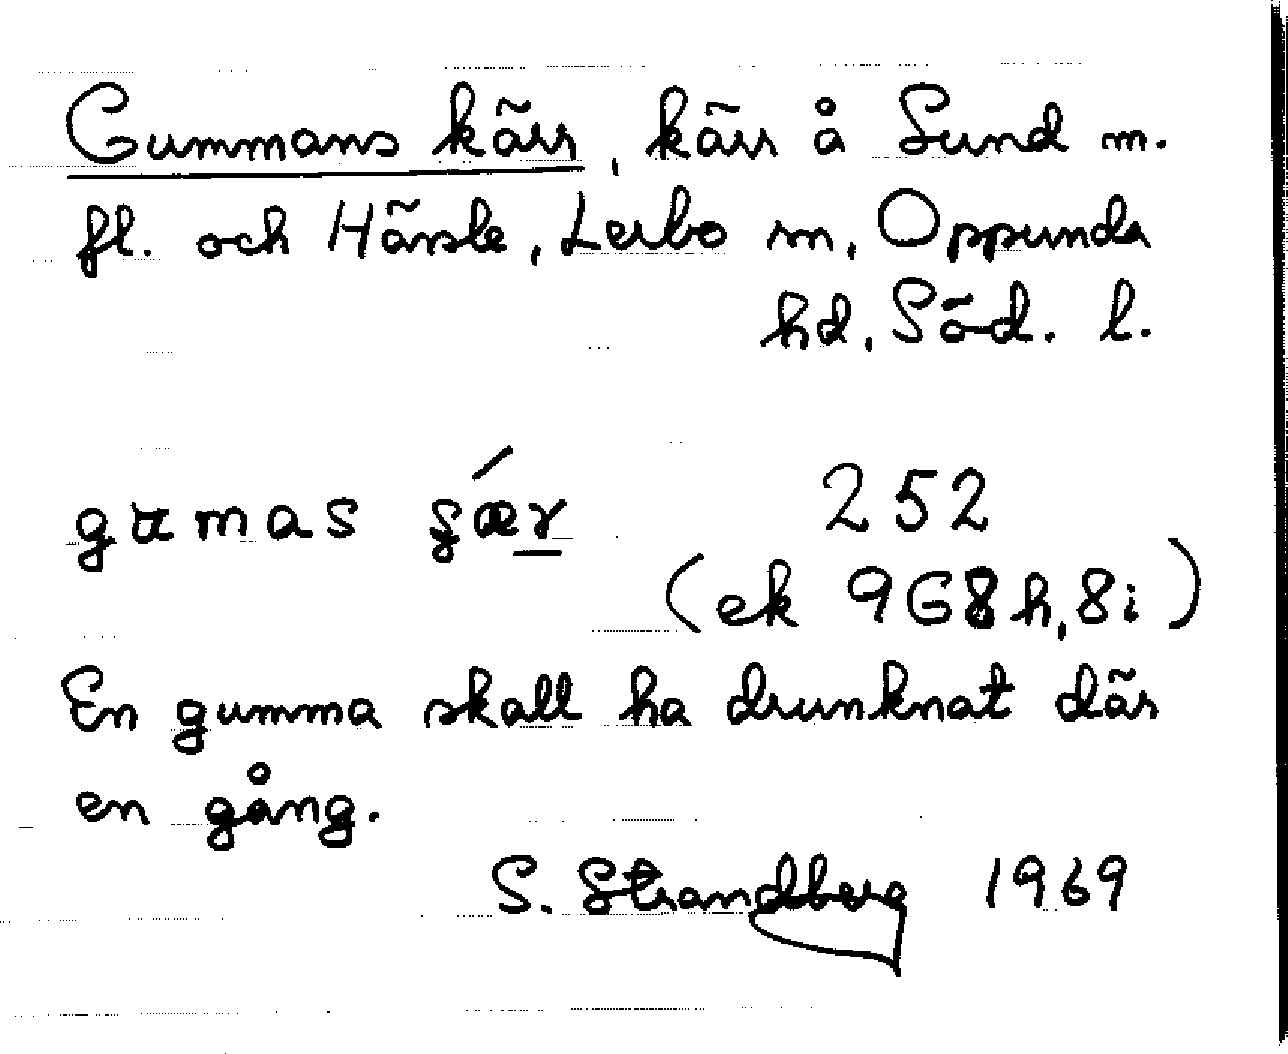 Gummans kärr, kärr å Sund m.
fl. och Härsle, Lerbo sn, Oppunda
hd, Söd. l.
252
(ek 9G8h,8i)
En gumma skall ha drunknat där
en gång.
S. Strandberg 1969